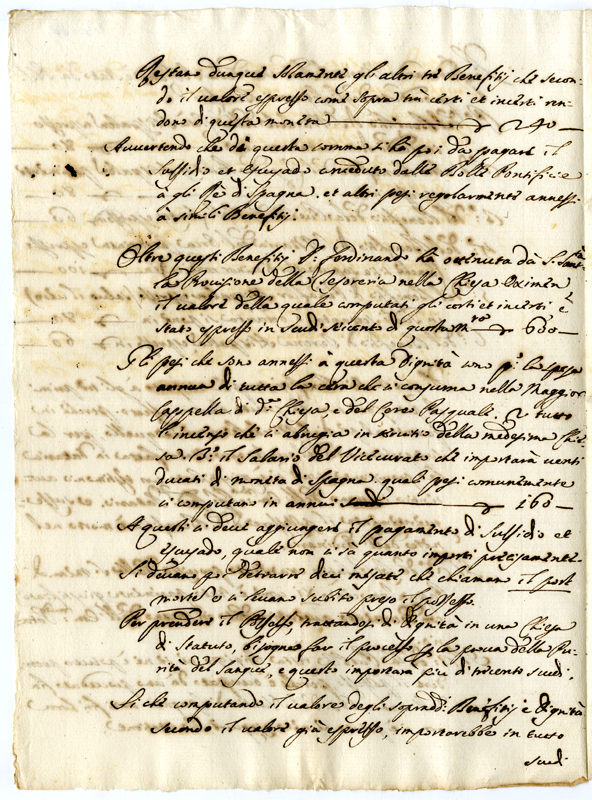 Restano dunque solamente gli altri trè Benefitij che secon-
do il valore espresso come sopra trà certi et incerti ren-
dono di questa moneta 240
Avvertendo che di questa somma si hà poi da pagare il
Sussidio et Escusado conceduto dalle Bolle Pontificie
à gli Rè di Spagna. et altri pesi regolarmente annessi
à simili Benefitij.
Oltre questi Benefitij D. Ferdinando hà ottenuta dà S. Santtà
la Provisione della Tesoreria nella Chiesa Oximen.
il valore della quale computati gli certi et incerti è
stato espresso in scudi seicento di questa mta 600
Gli pesi che sono annessi à questa Dignità sono pa la spesa
annua di tutta la cera che si consuma nella Maggior
Cappella di da Chiesa, e del Cereo Pasquale. 2 tutto
l'incenso che si abrugia in servitio della medesima Chie-
sa. 3: il Salario del Vicecurato che importarà venti
ducati di moneta di Spagna quali pesi comunemente
si computano in annui scudi 160
A questi si deve aggiungere il pagamento di Sussidio et
Escusado, quale non si sà quanto importi precisamente.
Si devano poi detrarre dieci mesate che chiamano il post
mortem e si levano subito preso il possesso.
Per prendere il Possesso, trattandosi di Dignità in una Chiesa
di Statuto, bisogna far il processo per la prova della Pu-
rità del Sangue, e questo importarà più di trecento scudi.
Si che computando il valore degli sopradi Benefitij e Dignità
secondo il valore già espresso, importarebbe in tutto
scudi